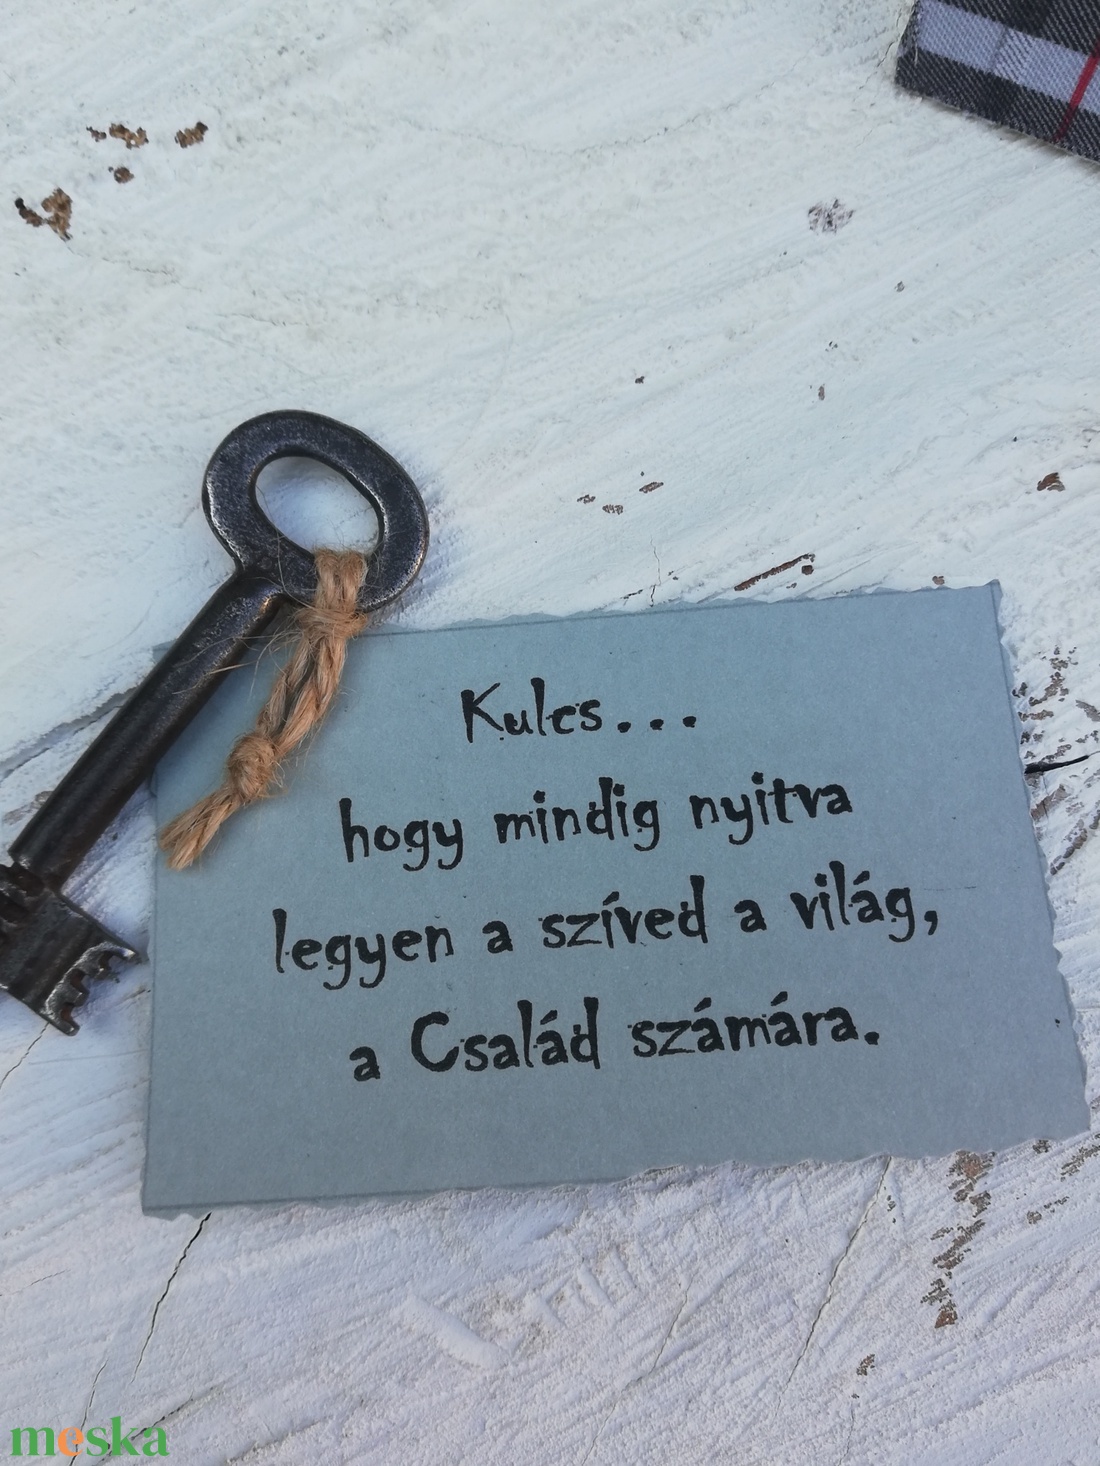 Kulcs...
hogy mindig nyitva
legyen a szíved a világ,
a Család számára.
meska